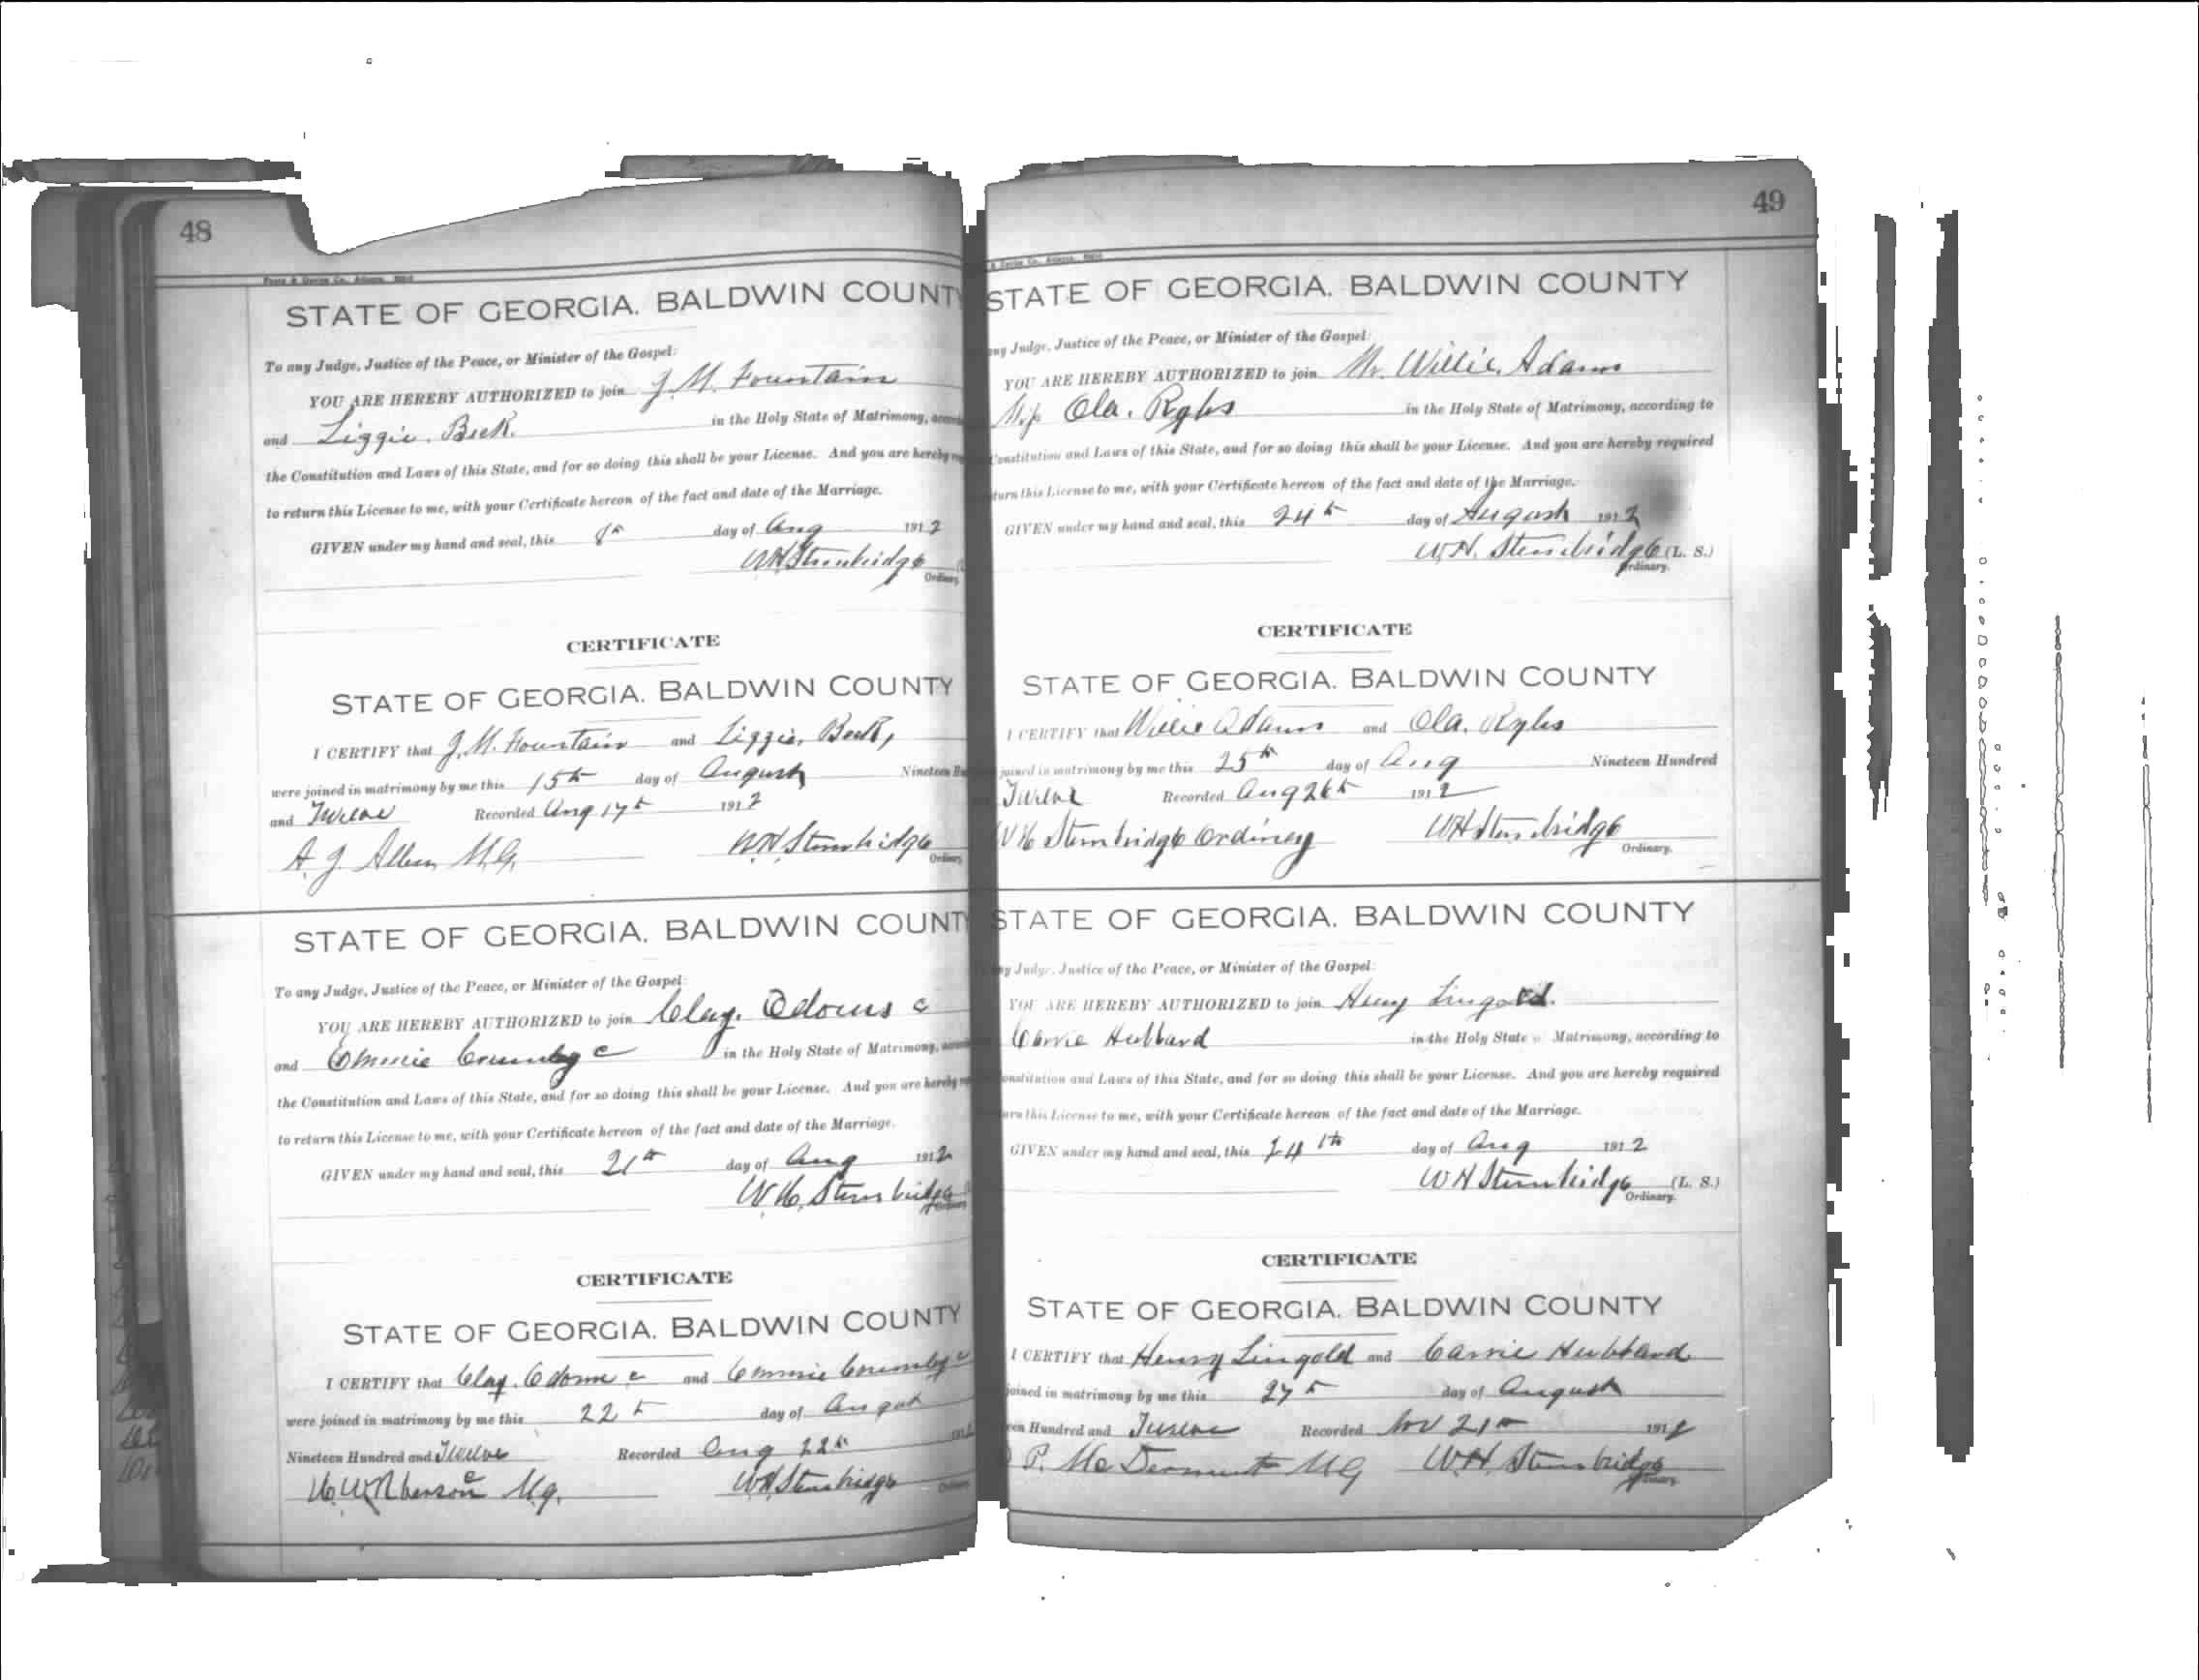 48
STATE OF GEORGIA. BALDWIN COUNT
To any Judge, Justice of the Peace, or Minister of the Gospel:
YOU ARE HEREBY AUTHORIZED to join J. M. Fountain
and Lizzie. Beck. in the Holy State of Matrimony,
the Constitution and Laws of this State, and for so doing this shall be your License. And you are hereby
to return this License to me, with your Certificate hereon of the fact and date of the Marriage.
GIVEN under my hand and seal, this 8th day of Aug 1912
WH Stembridge
Ordinary
CERTIFICATE
STATE OF GEORGIA. BALDWIN COUNTY
I CERTIFY that J. M. Fountain and Lizzie. Beck,
were joined in matrimony by me this 15th day of August Nineteen
and Twelve Recorded Aug 17th 1912
A. J. Allen M.G. W.H. Stembridge
Ordinary
STATE OF GEORGIA. BALDWIN COUNT
To any Judge, Justice of the Peace, or Minister of the Gospel:
YOU ARE HEREBY AUTHORIZED to join Clay. Odoms c
and Emmie c in the Holy State of Matrimony,
the Constitution and Laws of this State, and for so doing this shall be your License. And you are hereby
to return this License to me, with your Certificate hereon of the fact and date of the Marriage.
GIVEN under my hand and seal, this 21st day of Aug 1912
W.H. Stembridge
CERTIFICATE
STATE OF GEORGIA. BALDWIN COUNTY
I CERTIFY that Clay. Odom c and Emmie c
were joined in matrimony by me this 22 day of August
Nineteen Hundred and Twelve Recorded Aug 22 191
M.G. WH Stembridge
49
STATE OF GEORGIA. BALDWIN COUNTY
any Judge, Justice of the Peace, or Minister of the Gospel:
YOU ARE HEREBY AUTHORIZED to join Mr. Willie. Adams
Miss Ola. Ryles in the Holy State of Matrimony, according to
Constitution and Laws of this State, and for so doing this shall be your License. And you are hereby required
turn this License to me, with your Certificate hereon of the fact and date of the Marriage.
GIVEN under my hand and seal, this 24th day of August 1912
W.H. Stembridge (L. S.)
Ordinary.
CERTIFICATE
STATE OF GEORGIA. BALDWIN COUNTY
I CERTIFY that Willie Adams and Ola. Ryles
joined in matrimony by me this 25th day of Aug Nineteen Hundred
Twelve Recorded Aug 26th 1912
WH Stembridge Ordinary WH Stembridge
Ordinary.
STATE OF GEORGIA. BALDWIN COUNTY
ny Judge, Justice of the Peace, or Minister of the Gospel:
YOU ARE HEREBY AUTHORIZED to join Henry Lingold.
Carrie Hubbard in the Holy State Matrimony, according to
onstitution and Laws of this State, and for so doing this shall be your License. And you are hereby required
urn this License to me, with your Certificate hereon of the fact and date of the Marriage.
GIVEN under my hand and seal, this 24th day of Aug 1912
WH Stembridge (L. S.)
Ordinary.
CERTIFICATE
STATE OF GEORGIA. BALDWIN COUNTY
I CERTIFY that Henry Lingold and Carrie Hubbard
joined in matrimony by me this 27th day of August
een Hundred and Twelve Recorded Nov 21st 1912
P. McDermont MG W.H. Stembridge